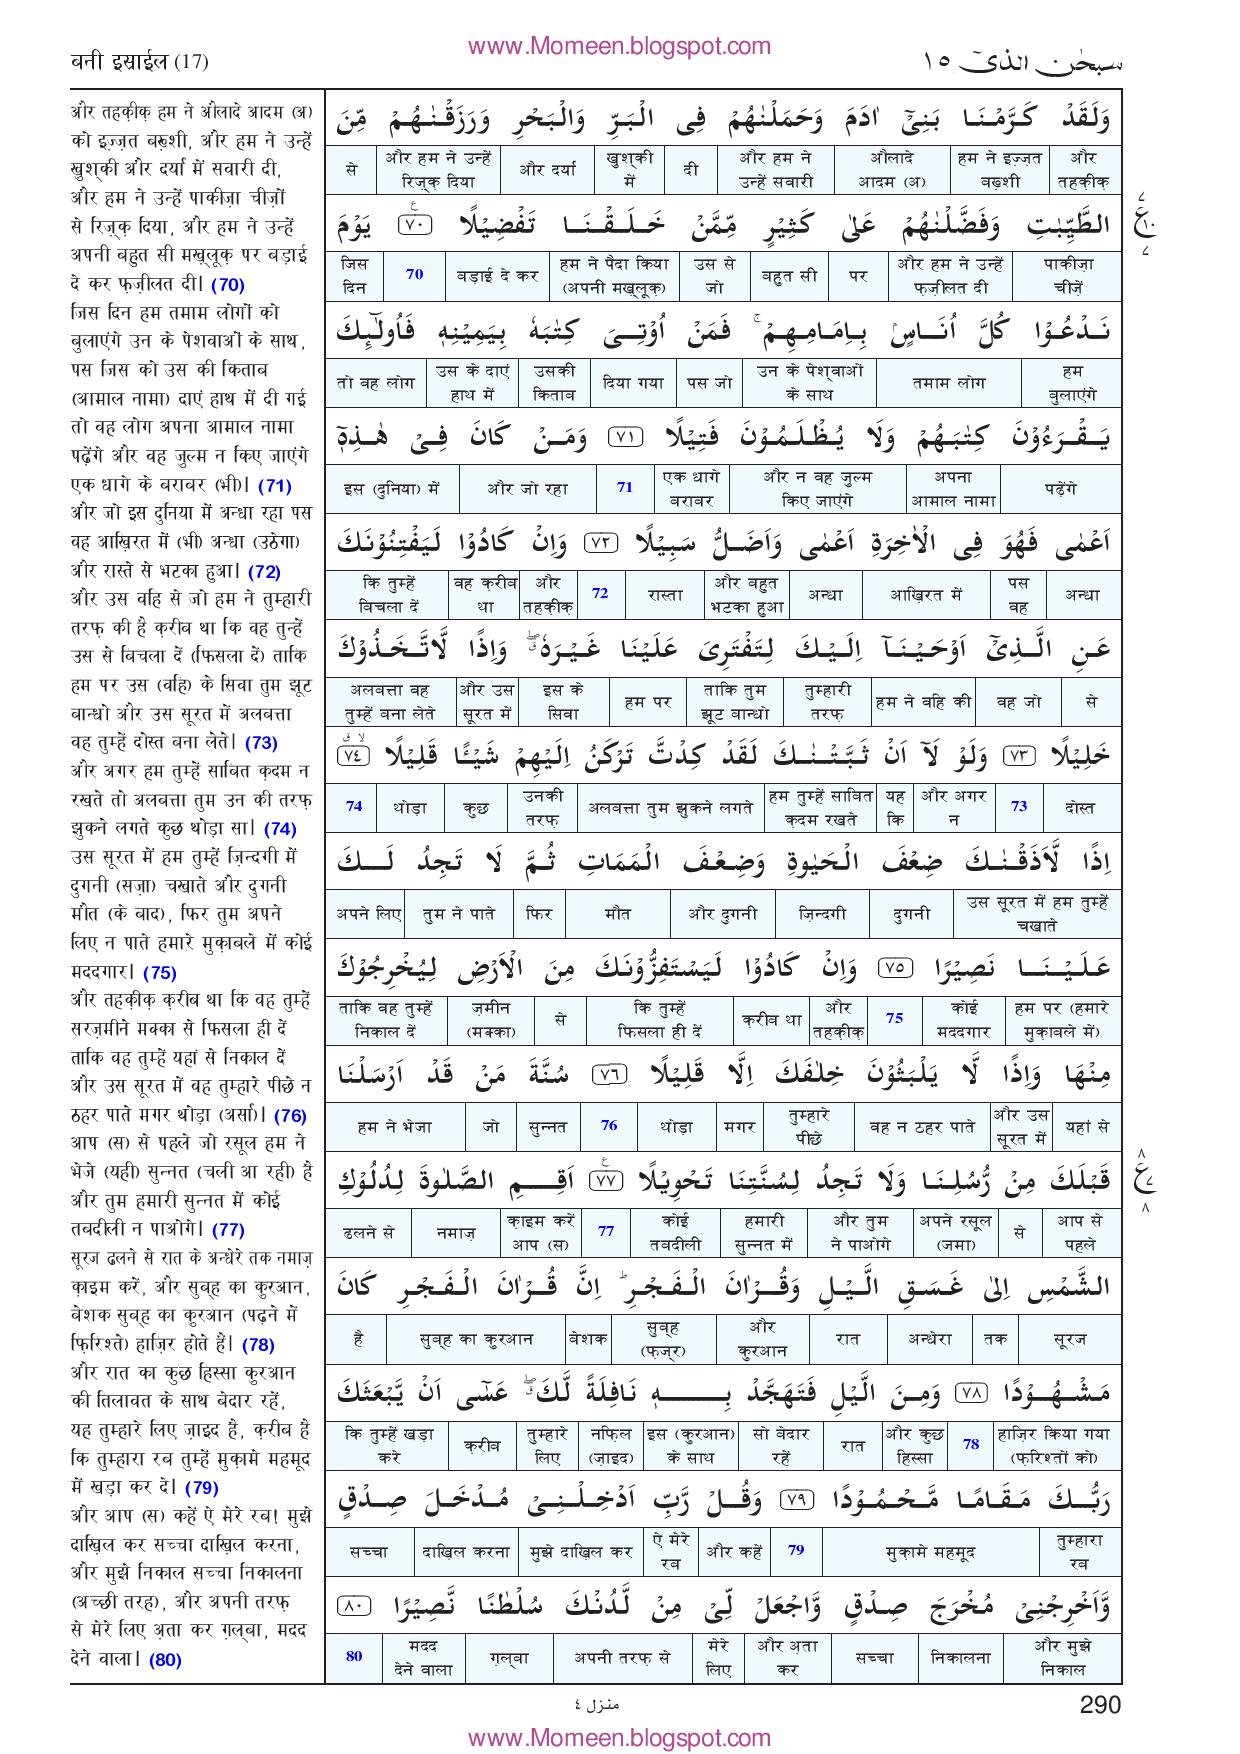 www.Momeen.blogspot.com
बनी इस्राईल (17)
سبحٰن الذی ١٥
और तहक़ीक़ हम ने औलादे आदम (अ)
को इज़्ज़त बख़्शी, और हम ने उन्हें
ख़ुश्की और दर्या में सवारी दी,
और हम ने उन्हें पाकीज़ा चीज़ों
से रिज़्क़ दिया, और हम ने उन्हें
अपनी बहुत सी मख़्लूक़ पर बड़ाई
दे कर फ़ज़ीलत दी। (70)
जिस दिन हम तमाम लोगों को
बुलाएंगे उन के पेशवाओं के साथ,
पस जिस को उस की किताब
(आमाल नामा) दाएं हाथ में दी गई
तो वह लोग अपना आमाल नामा
पढ़ेंगे और वह ज़ुल्म न किए जाएंगे
एक धागे के बराबर (भी)। (71)
और जो इस दुनिया में अन्धा रहा पस
वह आख़िरत में (भी) अन्धा (उठेगा)
और रास्ते से भटका हुआ। (72)
और उस वहि से जो हम ने तुम्हारी
तरफ़ की है क़रीब था कि वह तुन्हें
उस से विचला दें (फिसला दें) ताकि
हम पर उस (वहि) के सिवा तुम झूट
बान्धो और उस सूरत में अलबत्ता
वह तुम्हें दोस्त बना लेते। (73)
और अगर हम तुम्हें साबित क़दम न
रखते तो अलबत्ता तुम उन की तरफ़
झुकने लगते कुछ थोड़ा सा। (74)
उस सूरत में हम तुम्हें ज़िन्दगी में
दुगनी (सज़ा) चखाते और दुगनी
मौत (के बाद), फिर तुम अपने
लिए न पाते हमारे मुक़ाबले में कोई
मददगार। (75)
और तहक़ीक़ क़रीब था कि वह तुम्हें
सरज़मीने मक्का से फिसला ही दें
ताकि वह तुम्हें यहां से निकाल दें
और उस सूरत में वह तुम्हारे पीछे न
ठहर पाते मगर थोड़ा (अर्सा)। (76)
आप (स) से पहले जो रसूल हम ने
भेजे (यही) सुन्नत (चली आ रही) है
और तुम हमारी सुन्नत में कोई
तबदीली न पाओगे। (77)
सूरज ढलने से रात के अन्धेरे तक नमाज़
क़ाइम करें, और सुब्ह का क़ुरआन,
बेशक सुब्ह का क़ुरआन (पढ़ने में
फ़िरिश्ते) हाज़िर होते हैं। (78)
और रात का कुछ हिस्सा क़ुरआन
की तिलावत के साथ बेदार रहें,
यह तुम्हारे लिए ज़ाइद है, क़रीब है
कि तुम्हारा रब तुम्हें मुक़ामे महमूद
में खड़ा कर दे। (79)
और आप (स) कहें ऐ मेरे रब! मुझे
दाख़िल कर सच्चा दाख़िल करना,
और मुझे निकाल सच्चा निकालना
(अच्छी तरह), और अपनी तरफ़
से मेरे लिए अ़ता कर ग़ल्बा, मदद
देने वाला। (80)
وَلَقَدْ كَرَّمْنَا بَنِىْٓ اٰدَمَ وَحَمَلْنٰهُمْ فِى الْبَرِّ وَالْبَحْرِ وَرَزَقْنٰهُمْ مِّنَ
से | और हम ने उन्हें रिज़्क़ दिया | और दर्या | ख़ुश्की में | दी | और हम ने उन्हें सवारी | औलादे आदम (अ) | हम ने इज़्ज़त बख़्शी | और तहक़ीक़
الطَّيِّبٰتِ وَفَضَّلْنٰهُمْ عَلٰى كَثِيْرٍ مِّمَّنْ خَلَقْنَا تَفْضِيْلًا ۧ ﴿٧٠﴾ يَوْمَ
जिस दिन | 70 | बड़ाई दे कर | हम ने पैदा किया (अपनी मख़्लूक़) | उस से जो | बहुत सी | पर | और हम ने उन्हें फ़ज़ीलत दी | पाकीज़ा चीज़ें
نَدْعُوْا كُلَّ اُنَاسٍۢ بِاِمَامِهِمْ ۚ فَمَنْ اُوْتِىَ كِتٰبَهٗ بِيَمِيْنِهٖ فَاُولٰٓئِكَ
तो वह लोग | उस के दाएं हाथ में | उसकी किताब | दिया गया | पस जो | उन के पेश्वाओं के साथ | तमाम लोग | हम बुलाएंगे
يَقْرَءُوْنَ كِتٰبَهُمْ وَلَا يُظْلَمُوْنَ فَتِيْلًا ﴿٧١﴾ وَمَنْ كَانَ فِىْ هٰذِهٖٓ
इस (दुनिया) में | और जो रहा | 71 | एक धागे बराबर | और न वह ज़ुल्म किए जाएंगे | अपना आमाल नामा | पढ़ेंगे
اَعْمٰى فَهُوَ فِى الْاٰخِرَةِ اَعْمٰى وَاَضَلُّ سَبِيْلًا ﴿٧٢﴾ وَاِنْ كَادُوْا لَيَفْتِنُوْنَكَ
कि तुम्हें विचला दें | वह क़रीब था | और तहक़ीक़ | 72 | रास्ता | और बहुत भटका हुआ | अन्धा | आख़िरत में | पस वह | अन्धा
عَنِ الَّذِىْٓ اَوْحَيْنَآ اِلَيْكَ لِتَفْتَرِىَ عَلَيْنَا غَيْرَهٗ ۖ وَاِذًا لَّاتَّخَذُوْكَ
अलबत्ता वह तुम्हें बना लेते | और उस सूरत में | इस के सिवा | हम पर | ताकि तुम झूट बान्धो | तुम्हारी तरफ़ | हम ने वहि की | वह जो | से
خَلِيْلًا ﴿٧٣﴾ وَلَوْ لَآ اَنْ ثَبَّتْنٰكَ لَقَدْ كِدْتَّ تَرْكَنُ اِلَيْهِمْ شَيْـًٔا قَلِيْلًا ﴿٧٤﴾
74 | थोड़ा | कुछ | उनकी तरफ़ | अलबत्ता तुम झुकने लगते | हम तुम्हें साबित क़दम रखते | यह कि | और अगर न | 73 | दोस्त
اِذًا لَّاَذَقْنٰكَ ضِعْفَ الْحَيٰوةِ وَضِعْفَ الْمَمَاتِ ثُمَّ لَا تَجِدُ لَكَ
अपने लिए | तुम ने पाते | फिर | मौत | और दुगनी | ज़िन्दगी | दुगनी | उस सूरत में हम तुम्हें चखाते
عَلَيْنَا نَصِيْرًا ﴿٧٥﴾ وَاِنْ كَادُوْا لَيَسْتَفِزُّوْنَكَ مِنَ الْاَرْضِ لِيُخْرِجُوْكَ
ताकि वह तुम्हें निकाल दें | ज़मीन (मक्का) | से | कि तुम्हें फिसला ही दें | क़रीब था | और तहक़ीक़ | 75 | कोई मददगार | हम पर (हमारे मुक़ाबले में)
مِنْهَا وَاِذًا لَّا يَلْبَثُوْنَ خِلٰفَكَ اِلَّا قَلِيْلًا ﴿٧٦﴾ سُنَّةَ مَنْ قَدْ اَرْسَلْنَا
हम ने भेजा | जो | सुन्नत | 76 | थोड़ा | मगर | तुम्हारे पीछे | वह न ठहर पाते | और उस सूरत में | यहां से
قَبْلَكَ مِنْ رُّسُلِنَا وَلَا تَجِدُ لِسُنَّتِنَا تَحْوِيْلًا ۧ ﴿٧٧﴾ اَقِمِ الصَّلٰوةَ لِدُلُوْكِ
ढलने से | नमाज़ | क़ाइम करें आप (स) | 77 | कोई तबदीली | हमारी सुन्नत में | और तुम ने पाओगे | अपने रसूल (जमा) | से | आप से पहले
الشَّمْسِ اِلٰى غَسَقِ الَّيْلِ وَقُرْاٰنَ الْفَجْرِ ؕ اِنَّ قُرْاٰنَ الْفَجْرِ كَانَ
है | सुब्ह का क़ुरआन | बेशक | सुब्ह (फ़ज्र) | और क़ुरआन | रात | अन्धेरा | तक | सूरज
مَشْهُوْدًا ﴿٧٨﴾ وَمِنَ الَّيْلِ فَتَهَجَّدْ بِهٖ نَافِلَةً لَّكَ ۖ عَسٰٓى اَنْ يَّبْعَثَكَ
कि तुम्हें खड़ा करे | क़रीब | तुम्हारे लिए | नफ़िल (ज़ाइद) | इस (क़ुरआन) के साथ | सो बेदार रहें | रात | और कुछ हिस्सा | 78 | हाज़िर किया गया (फ़रिश्तों को)
رَبُّكَ مَقَامًا مَّحْمُوْدًا ﴿٧٩﴾ وَقُلْ رَّبِّ اَدْخِلْنِىْ مُدْخَلَ صِدْقٍ
सच्चा | दाख़िल करना | मुझे दाख़िल कर | ऐ मेरे रब | और कहें | 79 | मुक़ामे महमूद | तुम्हारा रब
وَّاَخْرِجْنِىْ مُخْرَجَ صِدْقٍ وَّاجْعَلْ لِّىْ مِنْ لَّدُنْكَ سُلْطٰنًا نَّصِيْرًا ﴿٨٠﴾
80 | मदद देने वाला | ग़ल्बा | अपनी तरफ़ से | मेरे लिए | और अ़ता कर | सच्चा | निकालना | और मुझे निकाल
٧ ع ١٠ ٧
٨ ع ٧ ٨
منزل ٤
290
www.Momeen.blogspot.com